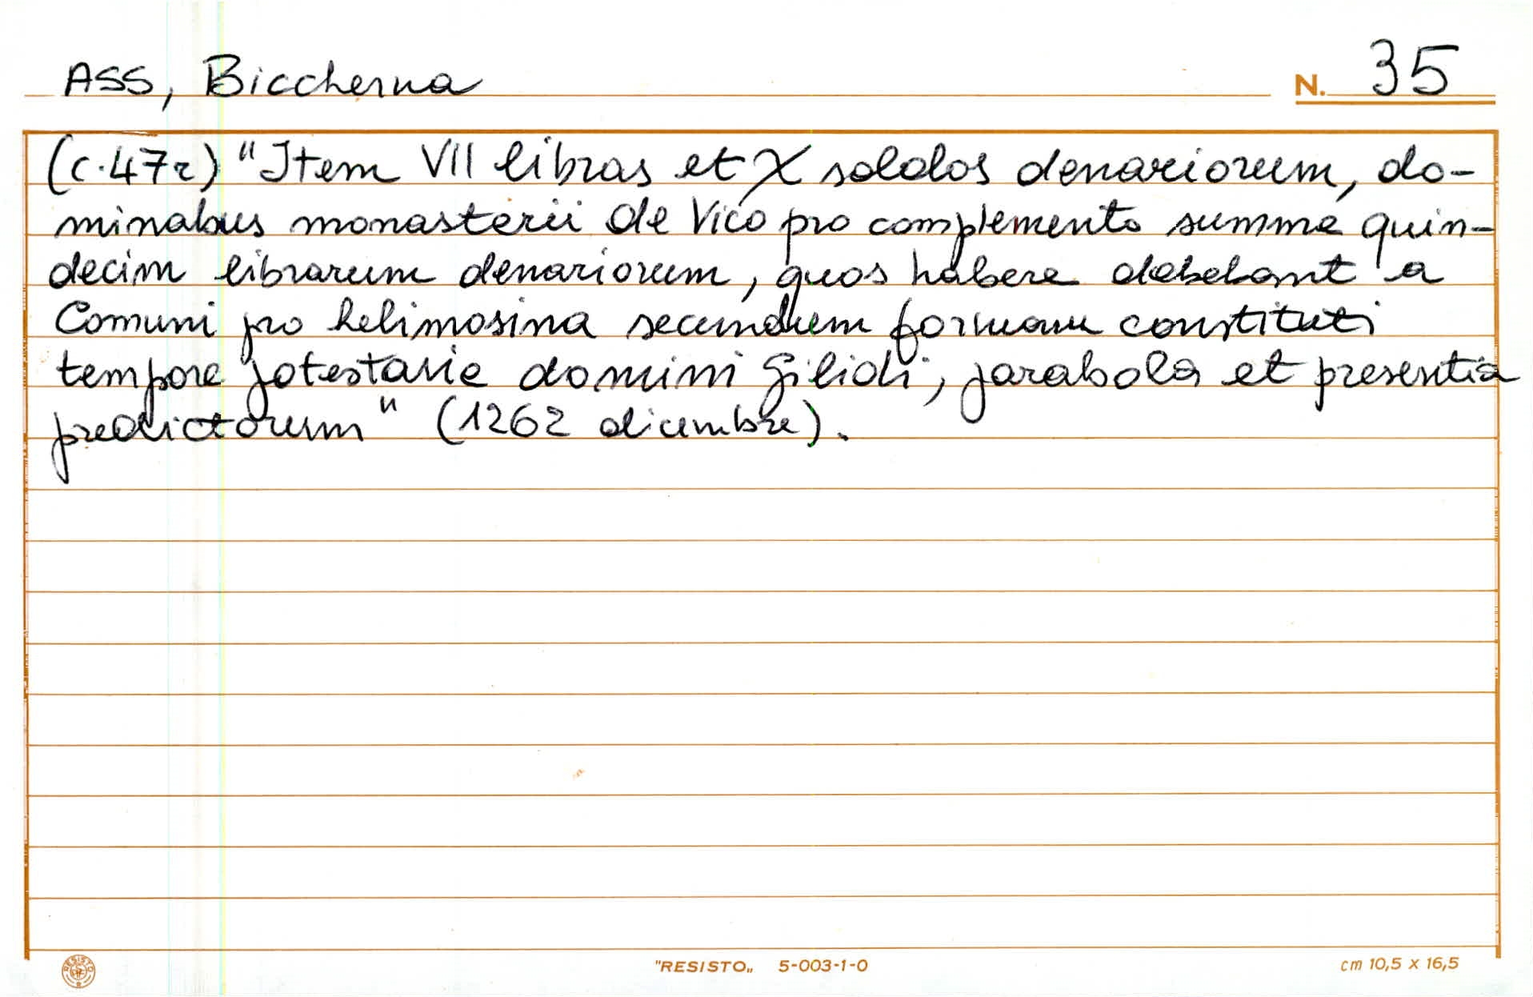 ASS, Biccherna
N. 35
(c. 47r) "Item VII libras et X soldos denariorum, do-
minabus monasterii de Vico pro complemento summe quin-
decim librarum denariorum, quos habere debebant a
Comuni pro helimosina secundum formam constituti
tempore potestarie domini Gilioli, parabola et presentia
predictorum" (1262 dicembre).
RESISTO
"RESISTO„ 5-003-1-0
cm 10,5 x 16,5